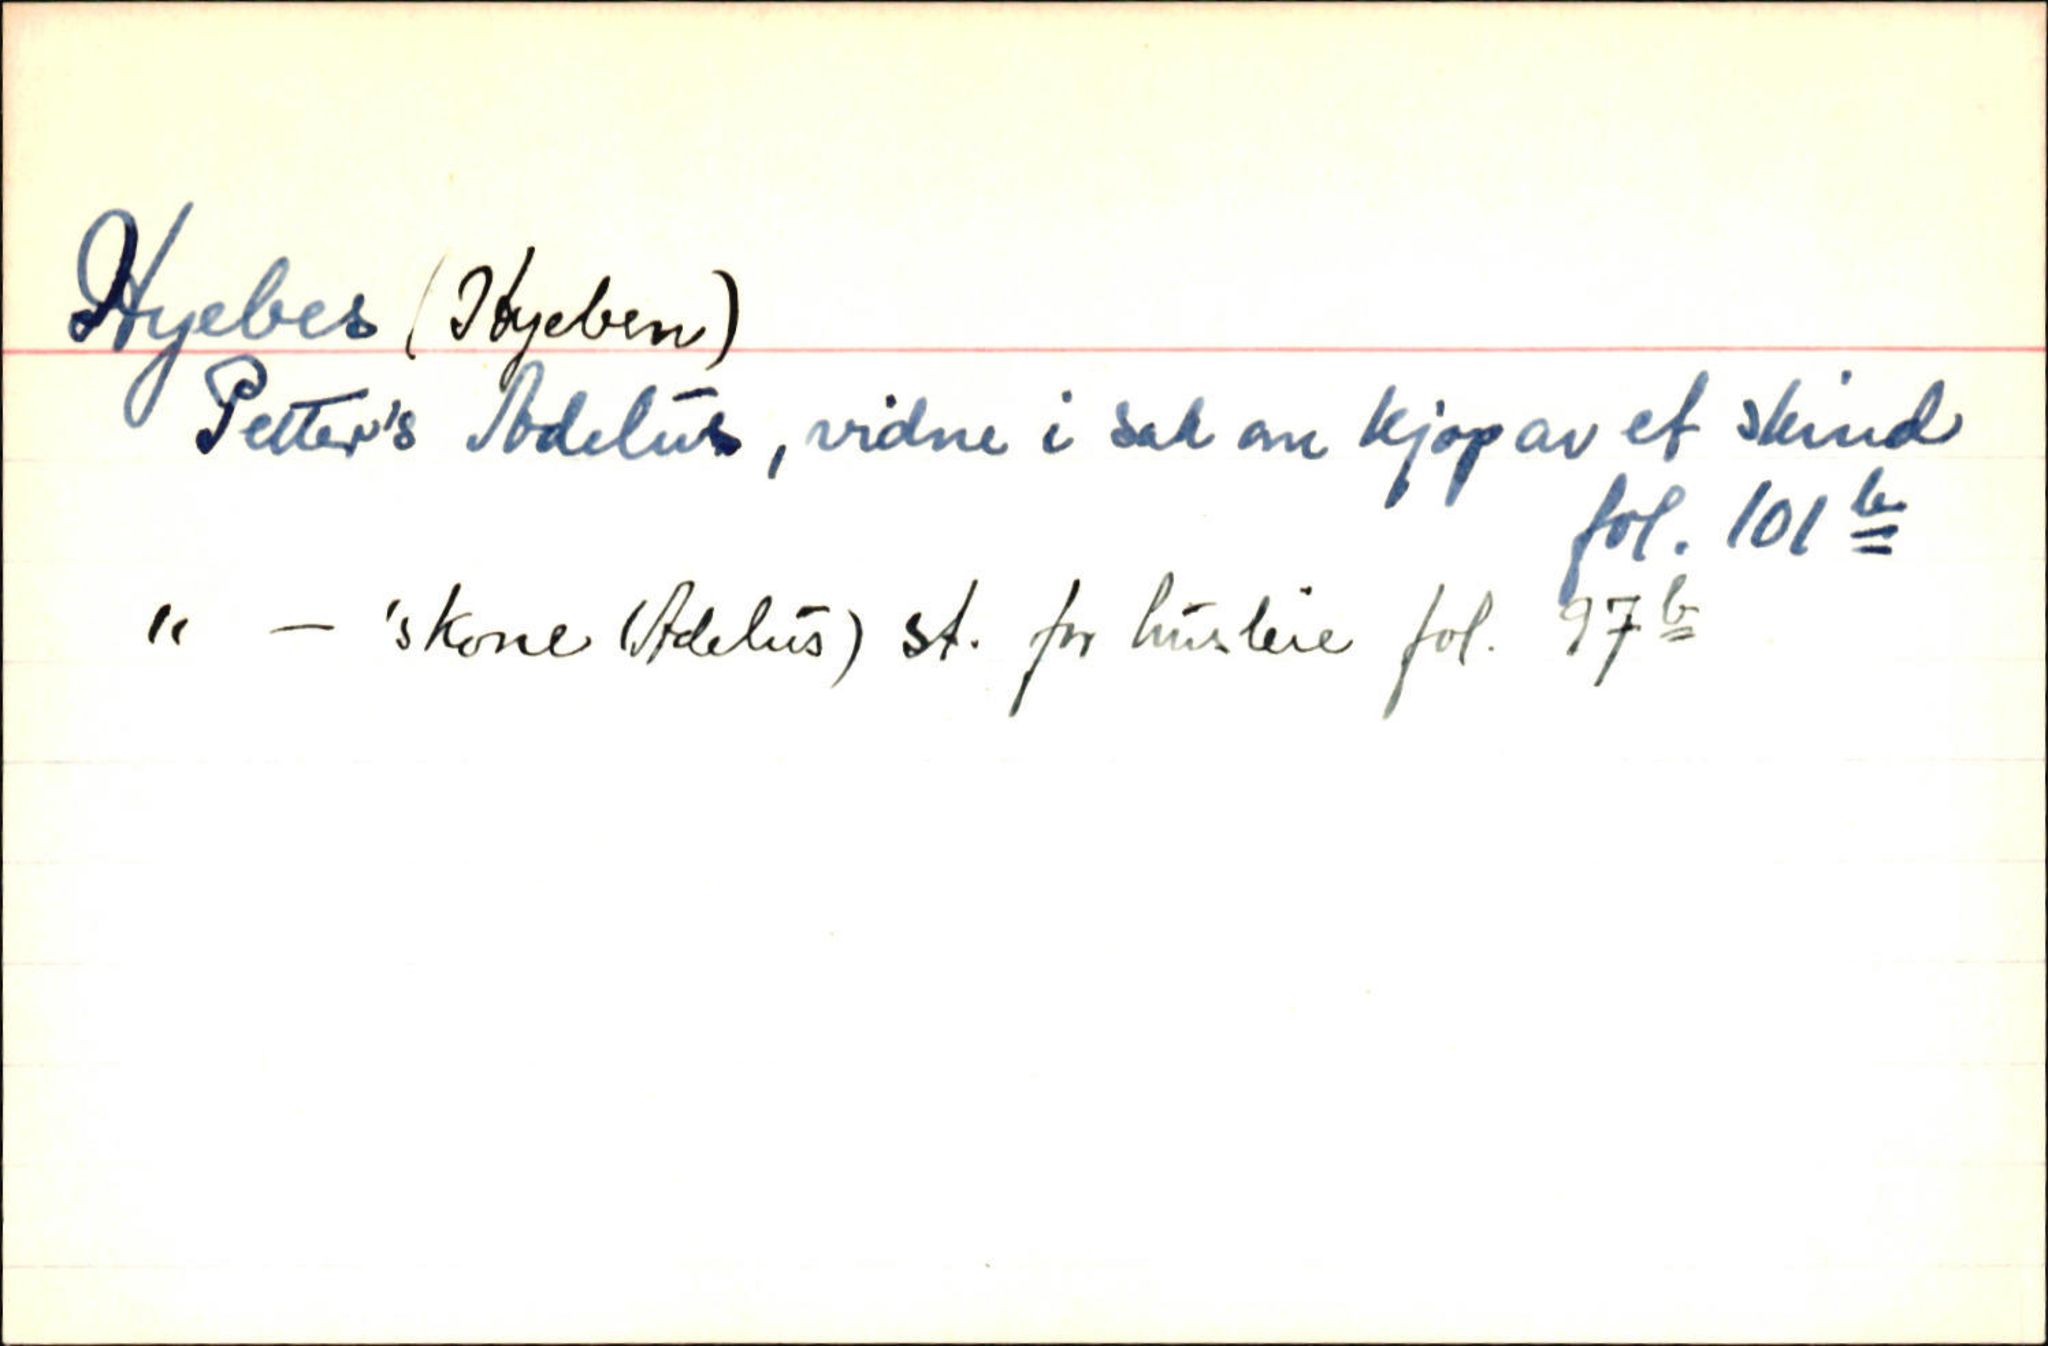 Hyebes (Hyeben)
Petter's Adelus, vidne i sak om kjøp av et skind
fol. 101 b
" — 's kone (Adelus) st. for husleie fol. 97 b